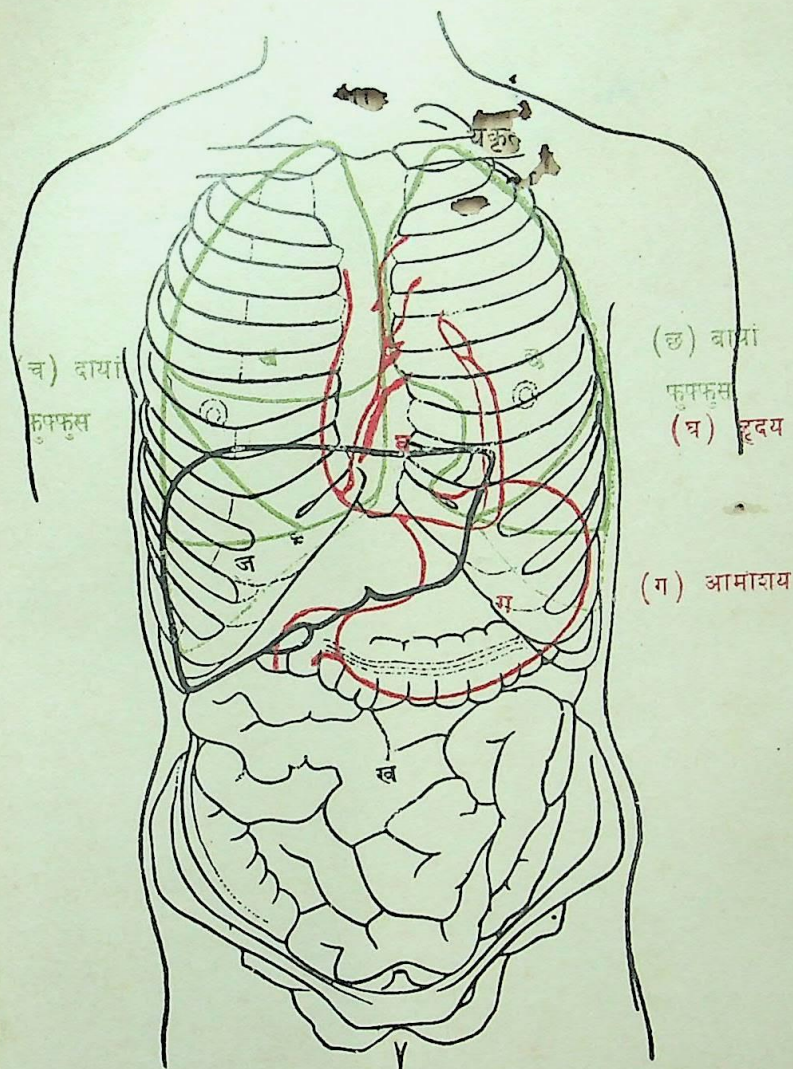 यकृ
(च) दायां
फुफ्फुस
(छ) बायां
फुफ्फुस
(घ) हृदय
घ
ज
(ग) आमाशय
ग
ख